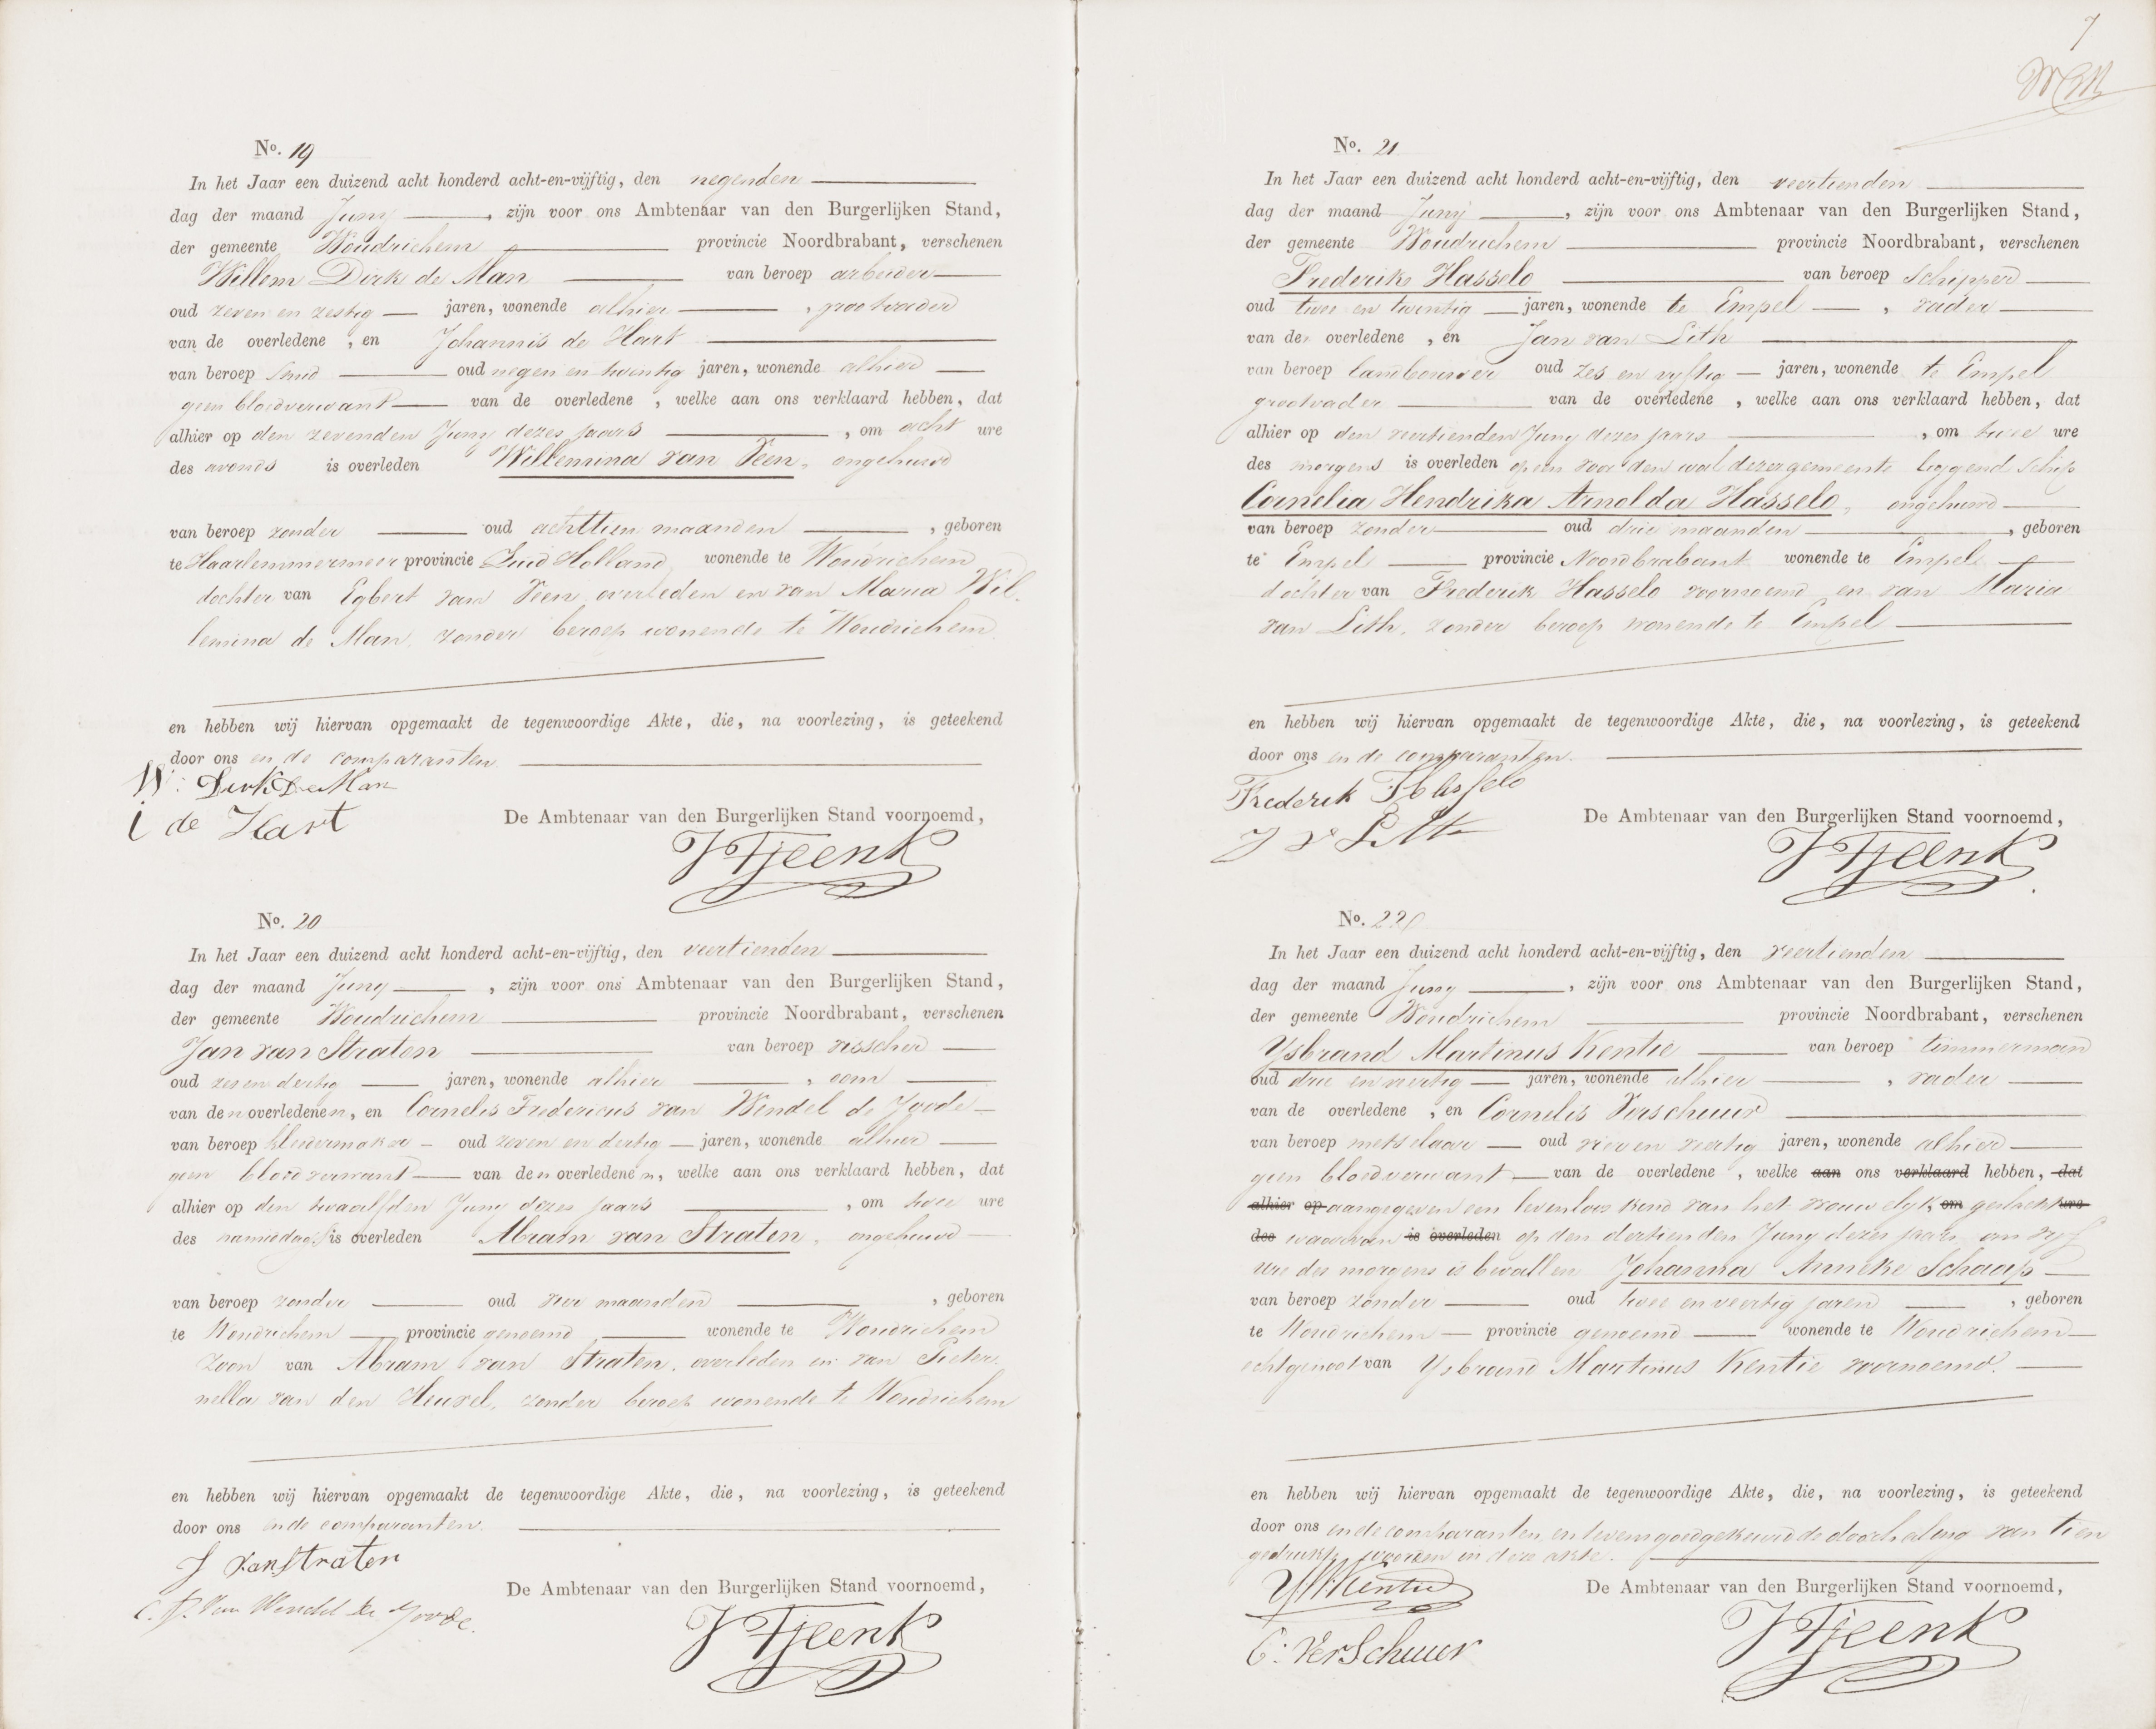 No. 19
In het Jaar een duizend acht honderd acht-en-vijftig, den negenden
dag der maand Juny , zijn voor ons Ambtenaar van den Burgerlijken Stand,
der gemeente Woudrichem provincie Noordbrabant, verschenen
Willem Dirk de Man van beroep arbeider
oud zeven en zestig jaren, wonende alhier , grootvader
van de overledene , en Johannis de Hart
van beroep smid oud negen en twintig jaren, wonende alhier
geen bloedverwant van de overledene , welke aan ons verklaard hebben, dat
alhier op den zevenden Juny dezes jaars , om acht ure
des avonds is overleden Willemina van Veen, ongehuwd
van beroep zonder oud achttien maanden , geboren
te Haarlemmermeer provincie Zuid Holland wonende te Woudrichem
dochter van Egbert van Veen, overleden en van Maria Wil-
lemina de Man, zonder beroep wonende te Woudrichem
en hebben wij hiervan opgemaakt de tegenwoordige Akte, die, na voorlezing, is geteekend
door ons en de comparanten.
W: Dirk De Man
i de Hart
De Ambtenaar van den Burgerlijken Stand voornoemd,
J Tjeenk
No. 20
In het Jaar een duizend acht honderd acht-en-vijftig, den veertienden
dag der maand Juny , zijn voor ons Ambtenaar van den Burgerlijken Stand,
der gemeente Woudrichem provincie Noordbrabant, verschenen
Jan van Straten van beroep visscher
oud zes en dertig jaren, wonende alhier , oom
van den overledenen, en Cornelis Fredericus van Wendel de Joode
van beroep kleedermaker oud zeven en dertig jaren, wonende alhier
geen bloedverwant van den overledenen, welke aan ons verklaard hebben, dat
alhier op den twaalfden Juny dezes jaars , om twee ure
des namiddags is overleden Abram van Straten, ongehuwd
van beroep zonder oud vier maanden , geboren
te Woudrichem provincie genoemd wonende te Woudrichem
zoon van Abram van Straten, overleden en van Pieter-
nella van den Heuvel, zonder beroep wonende te Woudrichem
en hebben wij hiervan opgemaakt de tegenwoordige Akte, die, na voorlezing, is geteekend
door ons en de comparanten.
J van Straten
C. F. Van Wendel de Joode.
De Ambtenaar van den Burgerlijken Stand voornoemd,
J Tjeenk
7
No. 21
In het Jaar een duizend acht honderd acht-en-vijftig, den veertienden
dag der maand Juny , zijn voor ons Ambtenaar van den Burgerlijken Stand,
der gemeente Woudrichem provincie Noordbrabant, verschenen
Frederik Hasselo van beroep Schipper
oud twee en twintig jaren, wonende te Empel , vader
van de overledene , en Jan van Lith
van beroep landbouwer oud zes en vyftig jaren, wonende te Empel
grootvader van de overledene , welke aan ons verklaard hebben, dat
alhier op den veertienden Juny dezes jaars , om twee ure
des morgens is overleden op een voor den wal dezer gemeente liggend schip
Cornelia Hendrika Arnolda Hasselo, ongehuwd
van beroep zonder oud drie maanden , geboren
te Empel provincie Noordbrabant wonende te Empel
dochter van Frederik Hasselo voornoemd en van Maria
van Lith, zonder beroep wonende te Empel
en hebben wij hiervan opgemaakt de tegenwoordige Akte, die, na voorlezing, is geteekend
door ons en de comparanten.
Frederik Hasselo
J v Lith
De Ambtenaar van den Burgerlijken Stand voornoemd,
J Tjeenk
No. 22
In het Jaar een duizend acht honderd acht-en-vijftig, den veertienden
dag der maand Juny , zijn voor ons Ambtenaar van den Burgerlijken Stand,
der gemeente Woudrichem provincie Noordbrabant, verschenen
Ysbrand Martinus Kentie van beroep timmerman
oud drie en veertig jaren, wonende alhier , vader
van de overledene , en Cornelis Verschuur
van beroep metselaar oud vier en veertig jaren, wonende alhier
geen bloedverwant van de overledene , welke aan ons verklaard hebben, dat
alhier op aangegeven een levenloos kind van het vrouwelyk om geslacht ure
des waarvan is overleden op den dertienden Juny dezes jaars, om vyf
ure des morgens is bevallen Johanna Anneke Schaap
van beroep zonder oud twee en veertig jaren , geboren
te Woudrichem provincie genoemd wonende te Woudrichem
echtgenoot van Ysbrand Martinus Kentie voornoemd.
en hebben wij hiervan opgemaakt de tegenwoordige Akte, die, na voorlezing, is geteekend
door ons en de comparanten, en tevens goedgekeurd de doorhaling van tien
gedrukte woorden in deze akte.
YMKentie
C: VerSchuur
De Ambtenaar van den Burgerlijken Stand voornoemd,
J Tjeenk